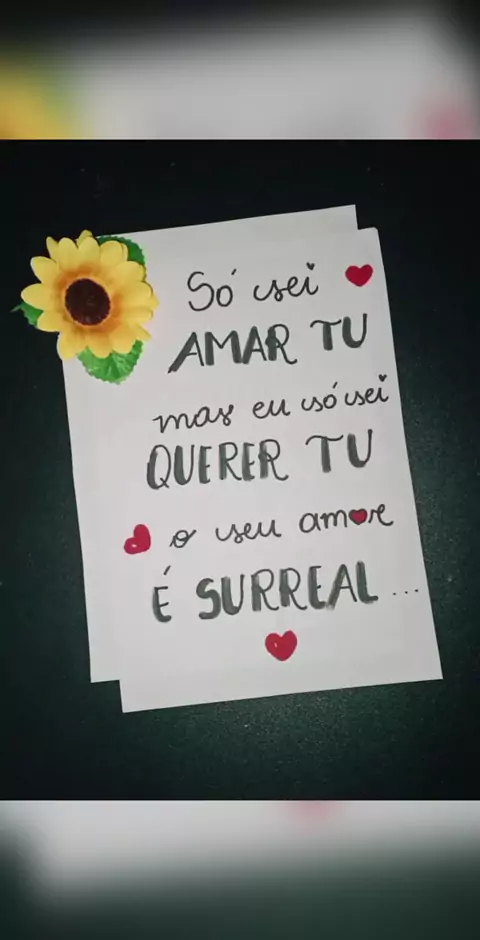 Só sei
AMAR TU
mas eu só sei
QUERER TU
o seu amor
É SURREAL...